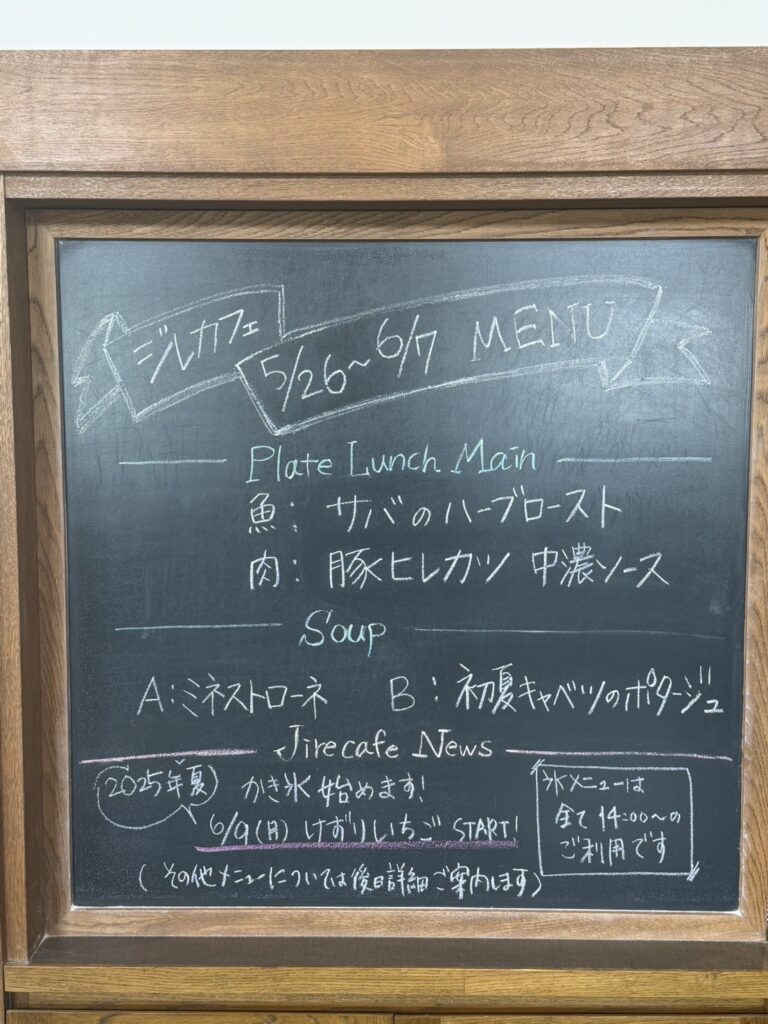 ジルカフェ
5/26~6/7 MENU
Plate Lunch Main
魚: サバのハーブロースト
肉: 豚ヒレカツ 中濃ソース
Soup
A:ミネストローネ B:初夏キャベツのポタージュ
Jirecafe News
2025年夏
かき氷始めます!
6/9(月) けずりいちご START!
(その他メニューについては後日詳細ご案内します)
氷メニューは
全て14:00~の
ご利用です